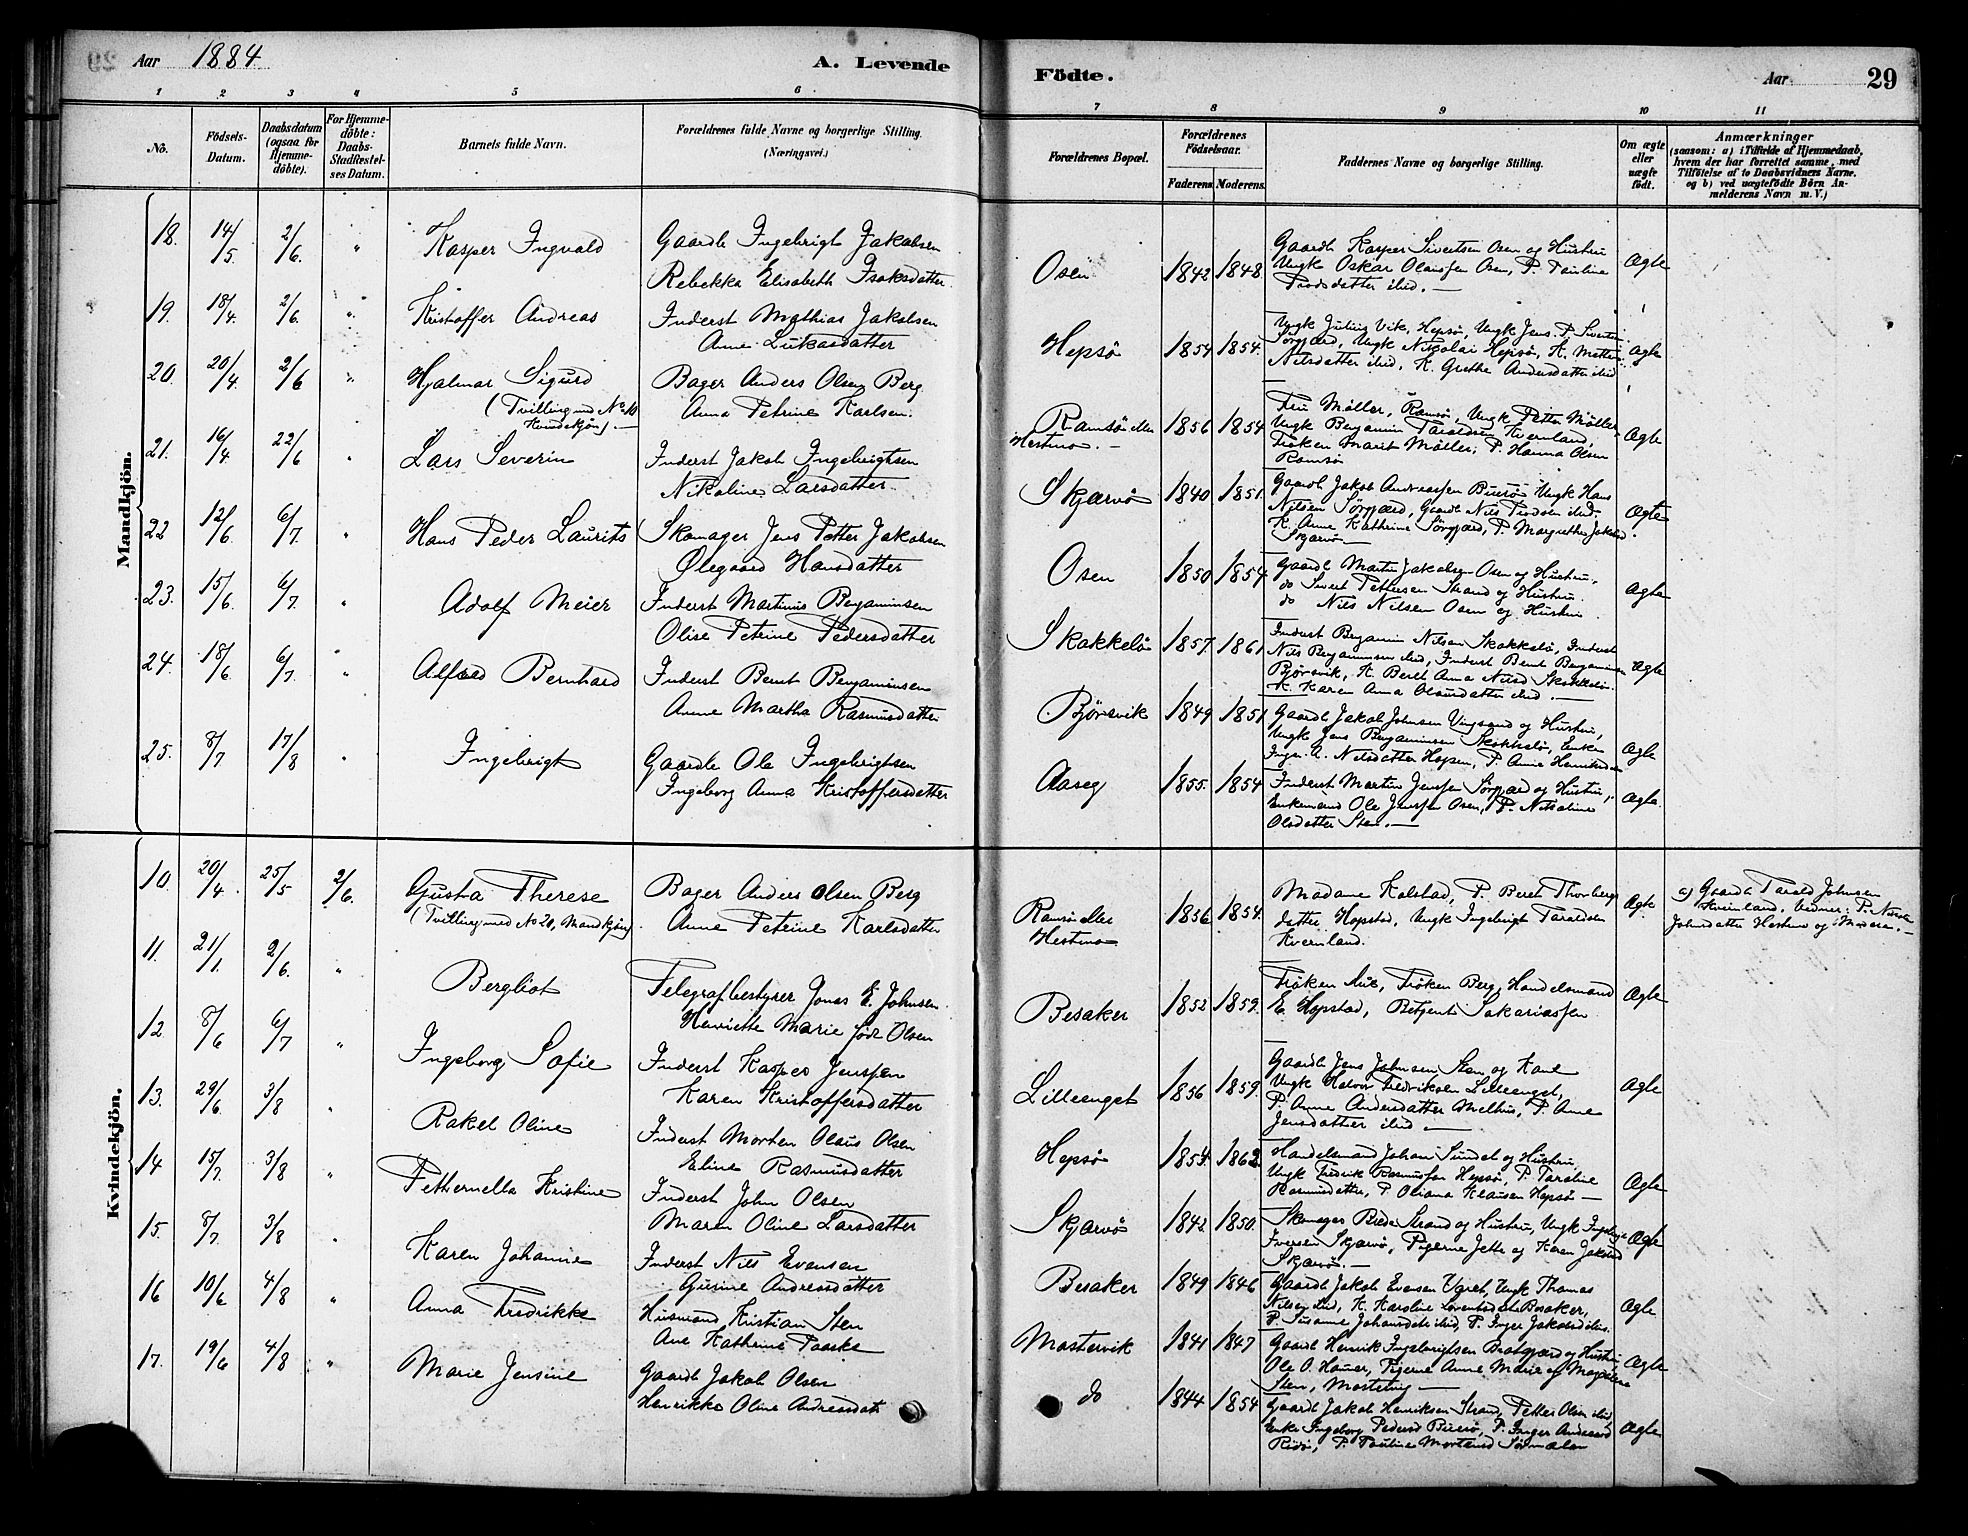 Aar 1884. A. Levende Födte. Aar 29
1 2 3 4 5 6 7 8 9 10 11
No.
Födsels-
Datum.
Daabsdatum
(ogsaa for
Hjemme-
döbte).
For Hjemme-
döbte:
Daabs-
Stadfæstel-
ses Datum.
Barnets fulde Navn.
Forældrenes fulde Navne og borgerlige Stilling.
(Næringsvei.)
Forældrenes Bopæl.
Forældrenes
Födselsaar.
Faderens Moderens.
Faddernes Navne og borgerlige Stilling.
Om ægte
eller
uægte
födt.
Anmærkninger
(saasom: a) i Tilfælde af Hjemmedaab,
hvem der har forrettet samme, med
Tilföielse af to Daabsvidners Navne.
og b) ved uægtefödte Börn An-
melderens Navn m. V.)
Mandkjön.
18. 14/5. 2/6. " Kasper Ingvald
Gaardb Ingebrigt Jakobsen
Rebekka Elisabeth Isaksdatter
Osen 1842 1848
Gaardb Kasper Sivertsen Osen og Hustru
Ungk Oskar Olaussen Osen, P. Pauline
ibid. —
Ægte
19. 18/4. 2/6. " Kristoffer Andreas
Inderst Mathias Jakobsen
Anne Lukasdatter
Hepsö 1854 1854.
Ungk Julius Vik, Hepsö, Ungk Jens P. Sivertsen
Sörgjærd, Ungk Nikolai Hepsö, K. Mette
Nilsdatter ibid, K. Grethe Andersdatter ibid
Ægte
20. 20/4. 2/6 " Hjalmar Sigurd
(Tvilling med No 10
Kvindekjön). —
Bager Anders Olsen Berg
Anna Petrine Karlsen.
Ramsö eller
Hestmo. — 1856 1854
Fru Möller, Ramsö, Ungk Petter Möller,
Ungk Benjamin Taraldsen Kvernland,
Fröken Marit Möller, P. Hanna Olsen
Ramsö
Ægte
21. 16/4. 22/6 " Lars Severin
Inderst Jakob Ingebrigtsen
Nikoline Larsdatter
Skjærvö 1840 1851.
Gaardb Jakob Andreassen Buerö Ungk Hans
Nilsen Sörgjærd, Gaardb Nils ibid.
K. Anne Kathrine Sörgjærd, P. Margrethe Jakobsd.
Skjærvö —
Ægte
22 12/6. 6/7. " Hans Peder Laurits
Skomager Jens Petter Jakobsen
Ølegaard Hansdatter
Osen 1850 1854
Gaardb Martin Jakobsen Osen og Hustru,
do Sivert Pettersen Strand og Hustru.
do Nils Nilsen Osen og Hustru
Ægte
23. 15/6. 6/7. " Adolf Meier
Inderst Martinus Benjaminsen
Olise Petrine Pedersdatter
Skokkelö 1857. 1861
Inderst Benjamin Nilsen Skokkelö, Inderst
Nils Benjaminsen ibid, Inderst Bernt Benjaminsen
Bjórsvik, K. Beret Anna Nilsd Skokkelö.
K. Karen Anna Olausdatter ibid. —
Ægte
24. 18/6. 6/7. " Alfred Bernhard
Inderst Bernt Benjaminsen
Anne Martha Rasmusdatter
Bjórsvik 1849 1851
Gaardb Jakob Johnsen Vingsand og Hustru,
Ungk Jens Benjaminsen Skokkelö, Enken
Nilsdatter Hopen, P. Anne
Ægte
25. 8/7. 17/8 " Ingebrigt
Gaardb Ole Ingebrigtsen
Ingeborg Anna Kristoffersdatter
Aaseg 1855. 1854
Inderst Martin Jenssen Sörgjærd og Hustru,
Enkemand Ole Jenssen Osen, P. Nikoline
Olsdatter Sten. —
Ægte
Kvindekjön.
10. 20/4. 25/5 2/6. Gusta Therese
(Tvilling med No 20, Mandkjön)
Bager Anders Olsen Berg
Anne Petrine Karlsdatter
Ramsö eller
Hestmo 1856 1854.
Madame Kolstad, P. Beret Thorbergs
datter Hopstad, Ungk Ingebrigt Taraldsen
Kvernland.
Ægte
a) Gaardb Tarald Johnsen
Kvernland, Vidner: P.
Johnsdatter Hestmo og Moderen. —
11. 21/1. 2/6. " Bergliot
Telegrafbestyrer Jonas E. Johnsen
Henriette Marie född Olsen
Besaker 1852 1859.
Fröken Fröken Berg, Handelsmand
E Hopstad, Betjent Sakariassen
Ægte
12 8/6 6/7 " Ingeborg Sofie
Inderst Kasper Jenssen
Karen Kristoffersdatter
Lilleenget 1856 1859.
Gaardb Jens Johnsen, Sten og Kone
Ungk Fredriksen Lilleenget,
P. Anne Andersdatter Melhus, P. Anne
Jensdatter ibid —
Ægte
13. 29/6. 3/8 " Rakel Oline
Inderst Morten Olaus Olsen
Eline Rasmusdatter
Hepsö 1854. 1862
Handelsmand Johan Sundet og Hustru,
Ungk Fredrik Rasmussen Hepsö, P. Taraline
Rasmusdatter, P. Oliana Klausen Hepsö —
Ægte
14 15/7. 3/8 " Pethernella Kristine
Inderst John Olsen
Maren Oline Larsdatter
Skjærvö 1842 1850.
Skomager Peder Strand og Hustru, Ungk
Iversen Skjærvö, Pigerne Jette og Karen Jakobsd
Skjærvö. —
Ægte
15. 8/7. 3/8 " Karen Johanne
Inderst Nils Evensen
Gurine Andreasdatter
Besaker 1849 1846
Gaardb Jakob Evensen Ungk Thomas
Nilsen ibid, K. Karoline Besaker,
P. Susanne Johansdatter ibid, P. Inger Jakobsd ibid.
Ægte
16 10/6 4/8 " Anna Fredrikke
Husmand Kristian Sten
Ane Kathrine Paaske
Mastervik 1841 1847
Gaardb Henrik Ingebrigtsen Bratgjærd og Hustru
Ole O. Pigerne Anne Marie og
Sten, —
Ægte
17. 19/6 4/8 " Marie Jensine
Gaardb Jakob Olsen
Henrikke Oline Andreasdat
do 1844 1854
Gaardb Jakob Henriksen Strand, Petter Olsen ibid,
Enke Ingeborg Pedersd Buerö, P. Inger Andersd
P. Pauline Mortensd
Ægte